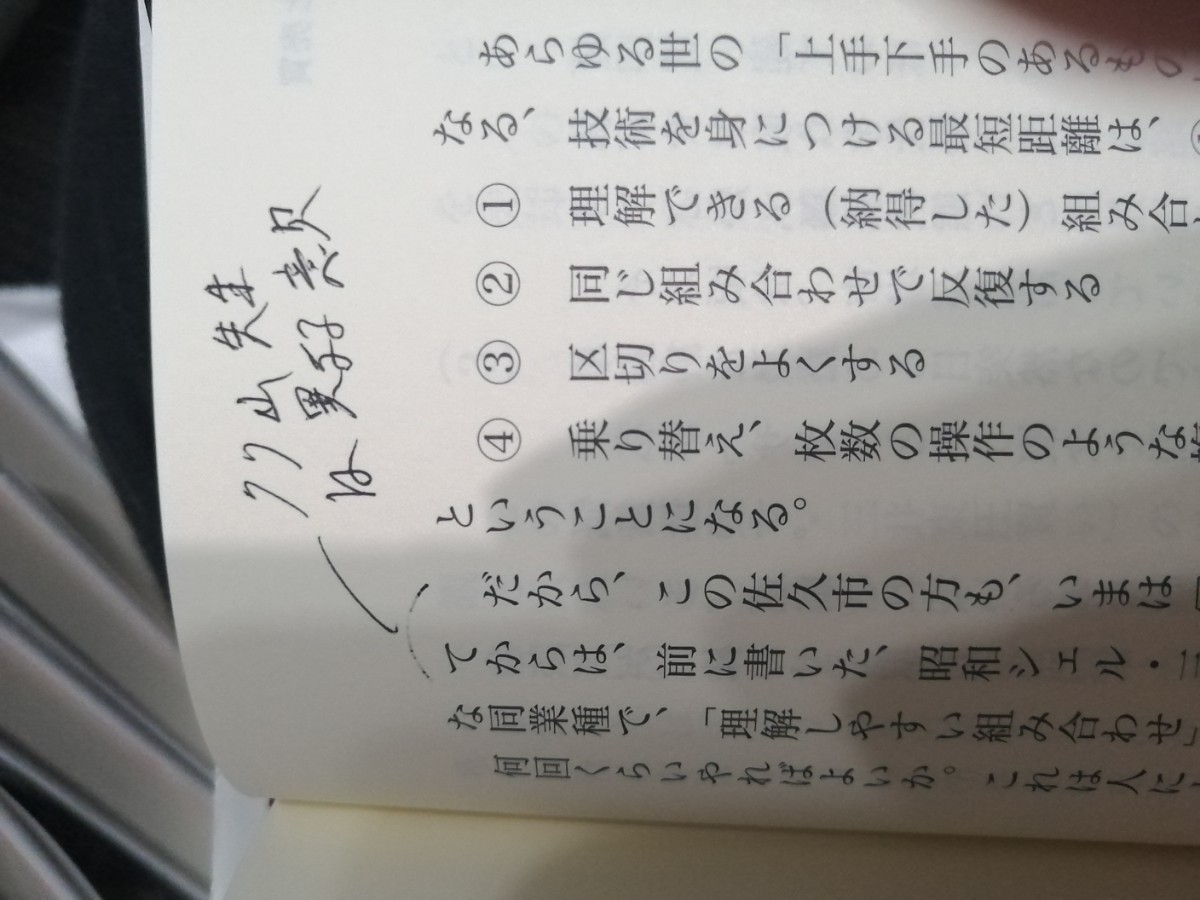 あらゆる世の「上手下手のあるもの
なる、技術を身につける最短距離は、
① 理解できる(納得した)組み合
② 同じ組み合わせで反復する
③ 区切りをよくする
④ 乗り替え、枚数の操作のような
ということになる。
だから、この佐久市の方も、いまは
てからは、前に書いた、昭和シェル・三
な同業種で、「理解しやすい組み合わせ」
何回くらいやればよいか。これは人に
山先生
は